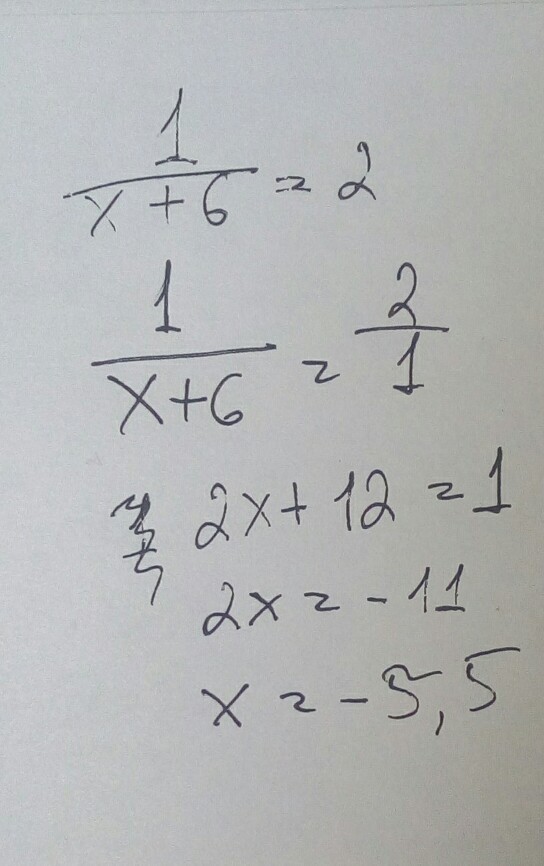 1/(x+6) = 2
1/(x+6) = 2/1
2x+12=1
2x=-11
x=-5,5